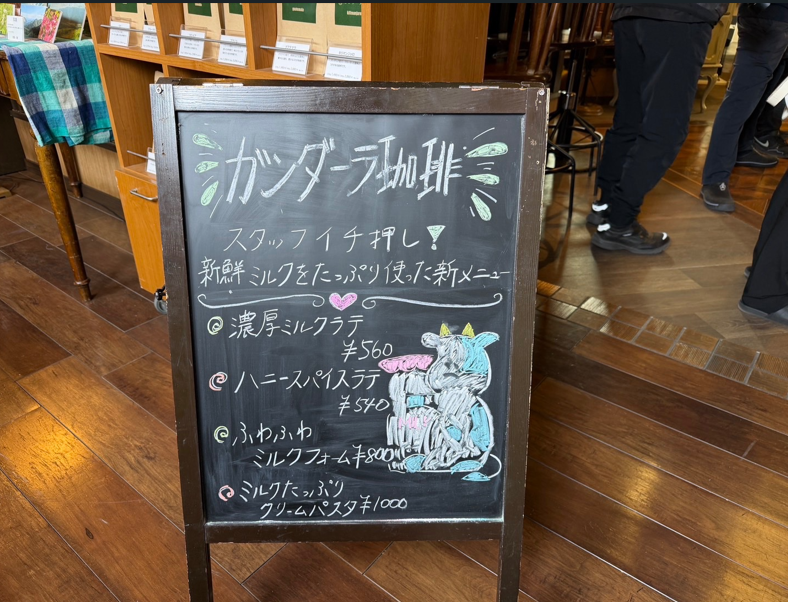 ガンダーラ珈琲
スタッフイチ押し!
新鮮ミルクをたっぷり使った新メニュー
濃厚ミルクラテ
¥560
ハニースパイスラテ
¥540
ふわふわ
ミルクフォーム¥800
ミルクたっぷり
クリームパスタ¥1000